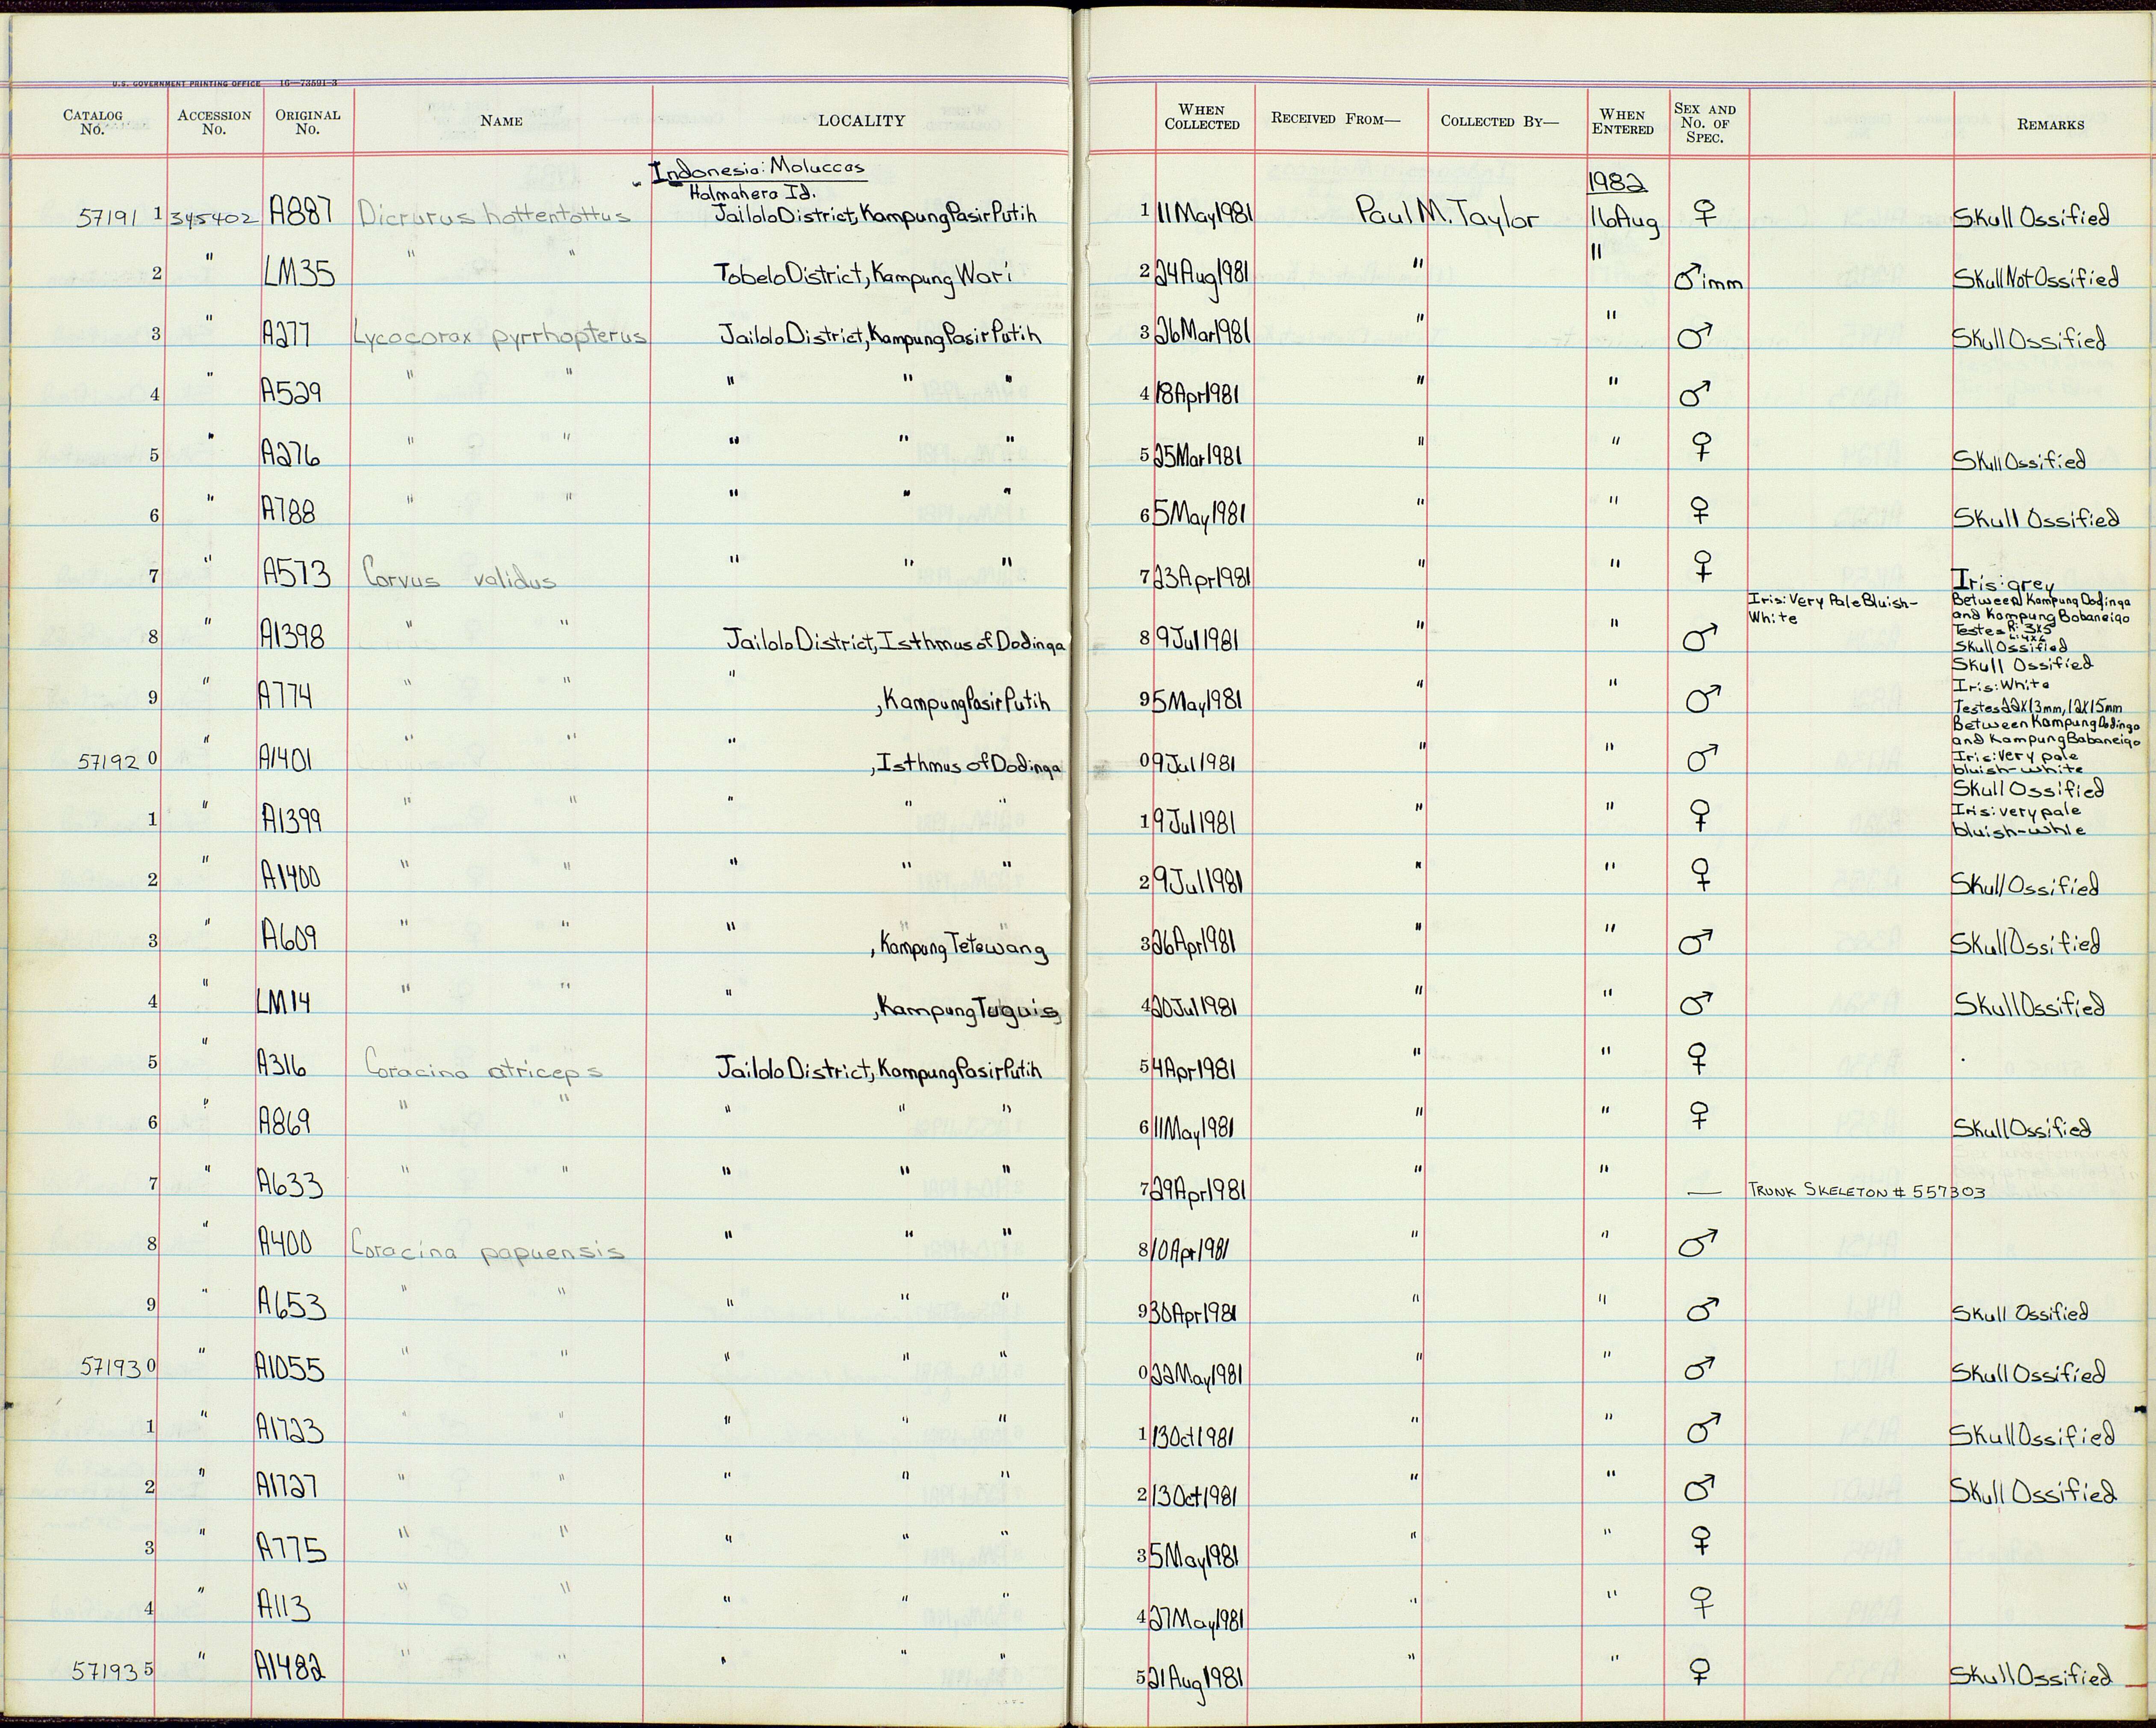 U.S. GOVERNMENT PRINTING OFFICE 16—73591-3
CATALOG No. ACCESSION No. ORIGINAL No. NAME LOCALITY WHEN COLLECTED RECEIVED FROM— COLLECTED BY— WHEN ENTERED SEX AND No. OF SPEC. REMARKS
Indonesia: Moluccas
Halmahera Id. 1982
57191 1 345402 A887 Dicrurus hottentottus Jailolo District, Kampung Pasir Putih 1 11 May 1981 Paul M. Taylor 16 Aug ♀ Skull Ossified
2 " LM35 " " Tobelo District, Kampung Wari 2 24 Aug 1981 " " ♂ imm Skull Not Ossified
3 " A277 Lycocorax pyrrhopterus Jailolo District, Kampung Pasir Putih 3 26 Mar 1981 " " ♂ Skull Ossified
4 " A529 " " " " " 4 18 Apr 1981 " " ♂
5 " A276 " " " " " 5 25 Mar 1981 " " ♀ Skull Ossified
6 " A788 " " " " " 6 5 May 1981 " " ♀ Skull Ossified
7 " A573 Corvus validus " " " 7 23 Apr 1981 " " ♀ Iris: grey
8 " A1398 " " Jailolo District, Isthmus of Dodinga 8 9 Jul 1981 " " ♂ Iris: Very Pale Bluish-
White
Between Kampung Dodinga
and Kampung Bobaneigo
Testes R: 3x5
L: 4x6
Skull Ossified
9 " A774 " " " , Kampung Pasir Putih 9 5 May 1981 " " ♂ Skull Ossified
Iris: White
Testes 22X13mm, 12X15mm
57192 0 " A1401 " " " , Isthmus of Dodinga 0 9 Jul 1981 " " ♂ Between Kampung Dodingo
and Kampung Babaneigo
Iris: Very pale
bluish-white
1 " A1399 " " " " " 1 9 Jul 1981 " " ♀ Skull Ossified
Iris: very pale
bluish-while
2 " A1400 " " " " " 2 9 Jul 1981 " " ♀ Skull Ossified
3 " A609 " " " , Kampung Tetewang 3 26 Apr 1981 " " ♂ Skull Ossified
4 " LM14 " " " , Kampung Tuguis 4 20 Jul 1981 " " ♂ Skull Ossified
5 " A316 Coracina atriceps Jailolo District, Kampung Pasir Putih 5 4 Apr 1981 " " ♀
6 " A869 " " " " " 6 11 May 1981 " " ♀ Skull Ossified
7 " A633 " " " " " 7 29 Apr 1981 " " — TRUNK SKELETON # 557303
8 " A400 Coracina papuensis " " " 8 10 Apr 1981 " " ♂
9 " A653 " " " " " 9 30 Apr 1981 " " ♂ Skull Ossified
57193 0 " A1055 " " " " " 0 22 May 1981 " " ♂ Skull Ossified
1 " A1723 " " " " " 1 13 Oct 1981 " " ♂ Skull Ossified
2 " A1727 " " " " " 2 13 Oct 1981 " " ♂ Skull Ossified
3 " A775 " " " " " 3 5 May 1981 " " ♀
4 " A113 " " " " " 4 27 May 1981 " " ♀
57193 5 " A1482 " " " " " 5 21 Aug 1981 " " ♀ Skull Ossified